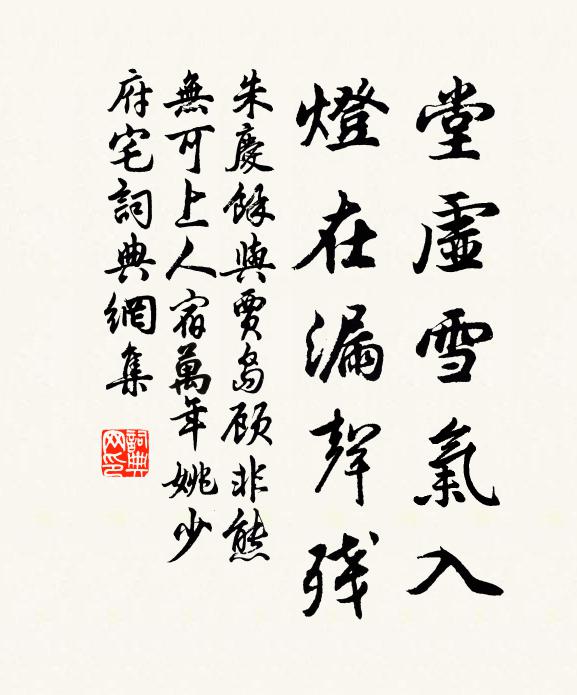 堂虛雪氣入
燈在漏聲殘
朱慶餘與賈島顧非熊
無可上人宿萬年姚少
府宅詞典網集
詞典網印